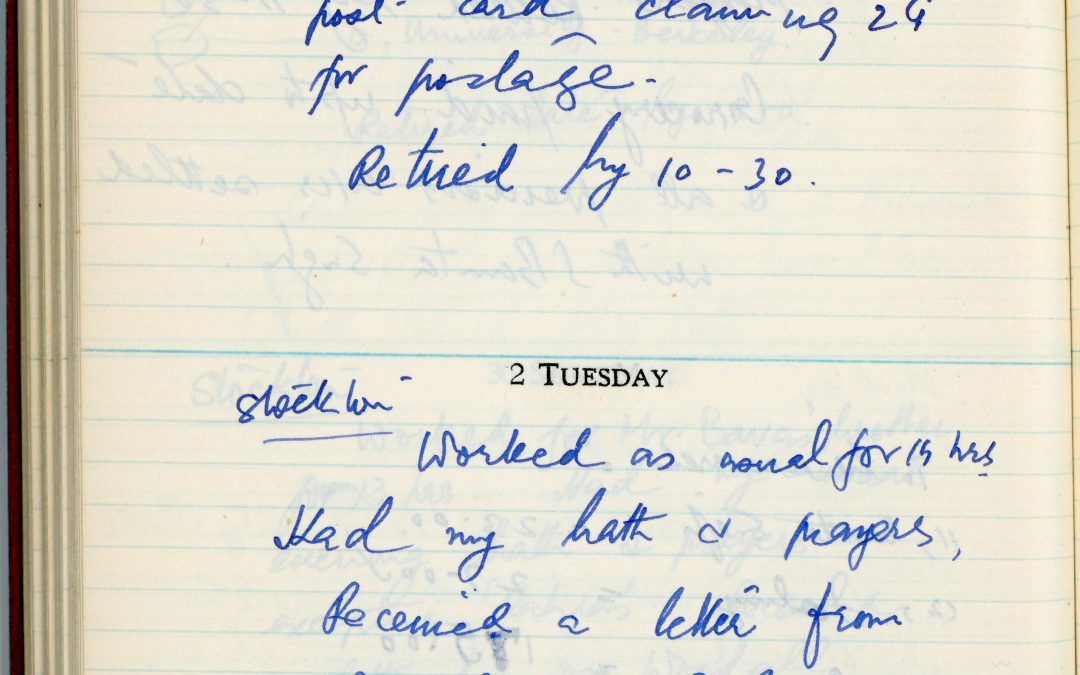 post-card claiming 2¢
for postage-
Retired by 10-30.
2 TUESDAY
Stockton
Worked as usual for 14 hrs
Had my bath & prayers,
Received a letter from